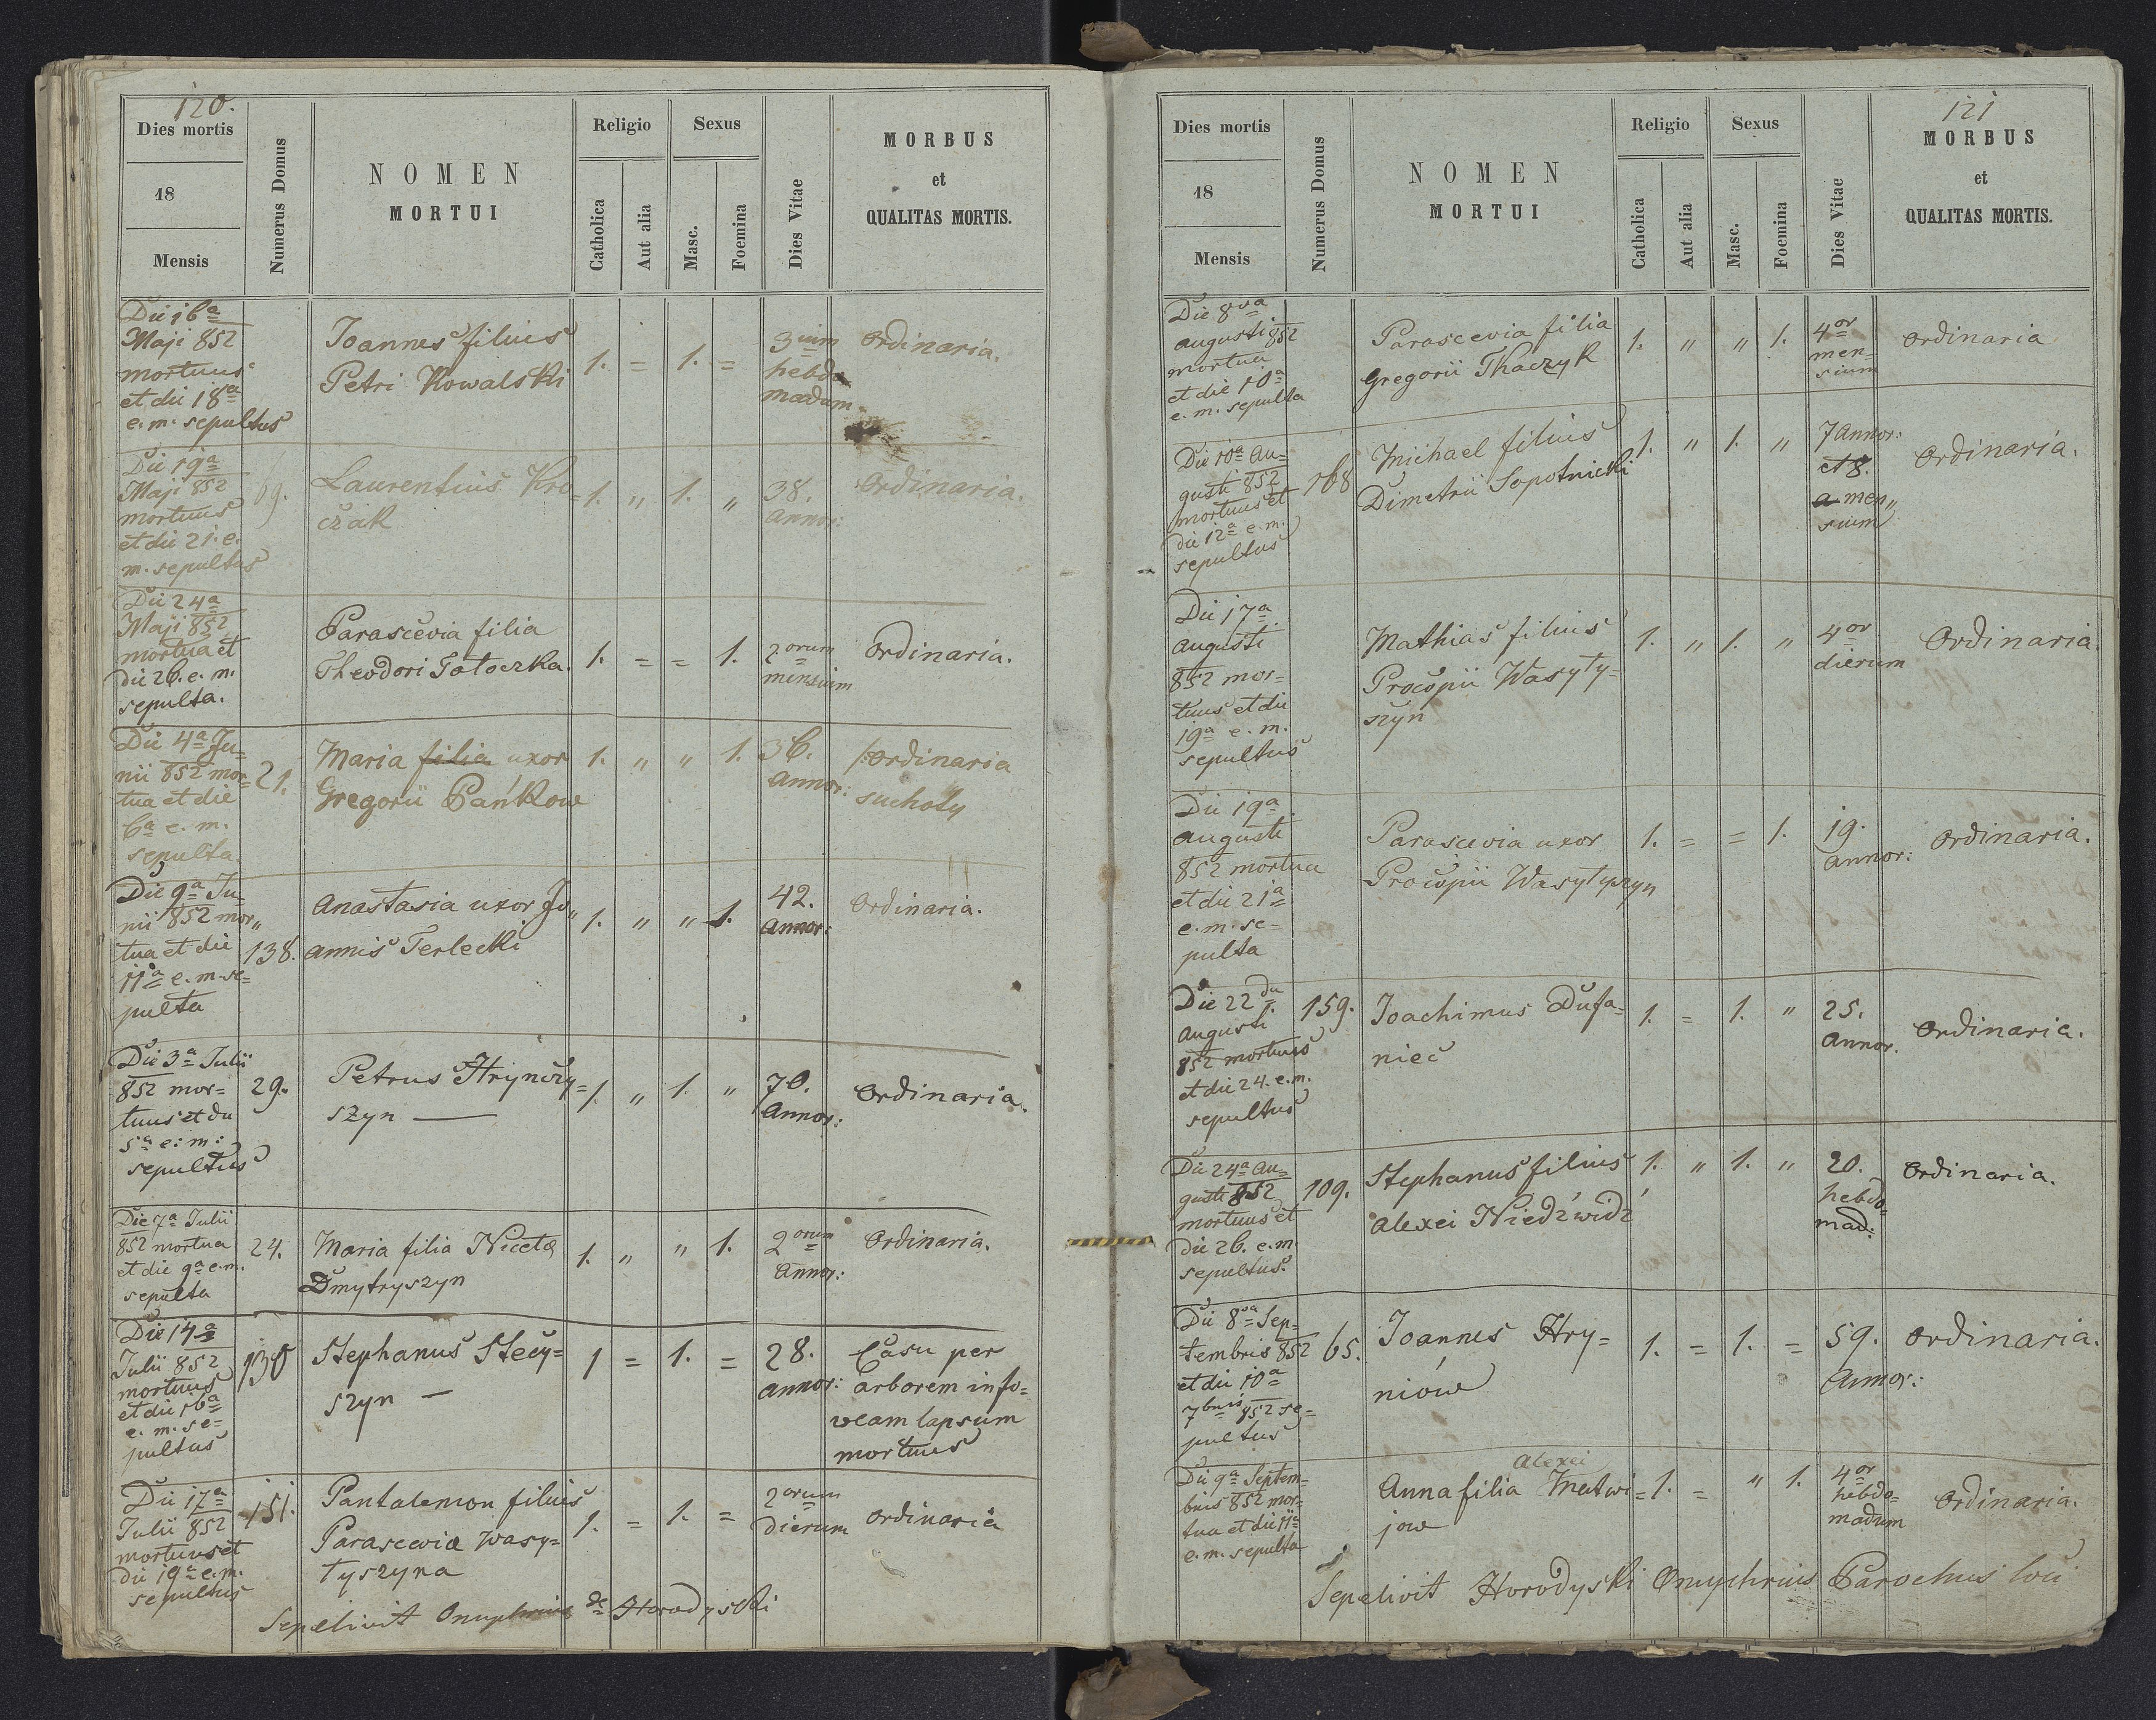 120.
Dies mortis
18
Mensis
Numerus Domus
NOMEN
MORTUI
Religio
Catholica
Aut alia
Sexus
Masc.
Foemina
Dies Vitae
MORBUS
et
QUALITAS MORTIS.
Die 16a
Maji 852
mortuus
et die 18a
e. m. sepultus
Joannes filius
Petri Kowalski
1. = 1. =
3ium
hebdo
madum
Ordinaria.
Die 19a
Maji 852
mortuus
et die 21. e.
m. sepultus
69.
Laurentius Kro=
czak
1. " 1. "
38.
annor:
Ordinaria.
Die 24a
Maji 852
mortua et
die 26. e. m.
sepulta.
Parascevia filia
Theodori Tatoczka.
1. = = 1.
2orum
mensium
Ordinaria.
Die 4a Ju=
nii 852 mor=
tua et die
6a e. m.
sepulta.
21.
Maria filia uxor
Gregorii Pańkow
1. " " 1.
36.
annor:
/:Ordinaria
suchoty
Die 9a Ju=
nii 852 mor"
tua et die
11a e. m. se=
pulta
138.
Anastasia uxor Jo"
annis Terlecki
1. " " 1.
42.
annor:
Ordinaria.
Die 3a Julii
852 mor=
tuus et die
5a e: m:
sepultus
29.
Petrus Hrynczy=
szyn —
1. " 1. "
70.
Annor:
Ordinaria.
Die 7a Julii
852 mortua
et die 9a e. m.
sepulta
24.
Maria filia Niceta
Dmytryszyn
1. " " 1.
2orum
Annor:
Ordinaria.
Die 14a
Julii 852
mortuus
et die 16a
e. m. se=
pultus
130
Stephanus Stecy=
szyn —
1 = 1. =
28.
annor:
Casu per
arborem in fo=
veam lapsum
mortuus
Die 17a
Julii 852
mortuus et
die 19a e. m.
sepultus
151.
Pantalemon filius
Parascevia Wasy=
tyszyna
1. = 1. =
2orum
dierum
ordinaria
Sepelivit Onuphrius de Horodyski
121
Dies mortis
18
Mensis
Numerus Domus
NOMEN
MORTUI
Religio
Catholica
Aut alia
Sexus
Masc.
Foemina
Dies Vitae
MORBUS
et
QUALITAS MORTIS.
Die 8va
augusti 852
mortua
et die 10a
e. m. sepulta
Parascevia filia
Gregorii Tkaczyk
1. " " 1.
4or
men=
sium
Ordinaria
Die 10a Au=
gusti 852
mortuus et
die 12a e. m.
sepultus
168
Michael filius
Dimetrii Sopotnicki
1. " 1. "
7 Annor:
et 8.
a men"
sium
Ordinaria.
Die 17a
augusti
852 mor=
tuus et die
19a e. m.
sepultus
Mathias filius
Procopii Wasyty=
szyn
1. " 1. "
4or
dierum
Ordinaria.
Die 19a
augusti
852 mortua
et die 21a
e. m. se=
pulta
Parascevia uxor
Procopii Wasytyszyn
1. = = 1.
19.
annor:
Ordinaria.
Die 22da
augusti
852 mortuus
et die 24. e. m.
sepultus
159.
Joachimus Dufa=
niec
1. = 1. "
25.
Annor.
Ordinaria.
Die 24a Au=
gusti 852
mortuus et
die 26. e. m.
sepultus.
109.
Stephanus filius
Alexei Niedźwidź
1. " 1. "
20.
hebdo=
mad:
Ordinaria.
Die 8va Sep=
tembris 852
et die 10a
7bris 852 se=
pultus
65.
Joannes Hry=
niów
1. = 1. =
59.
Annor:
Ordinaria.
Die 9a Septem=
bris 852 mor=
tua et die 11a
e. m. sepulta
Alexei
Anna filia Matwi=
jow
1. = " 1.
4or
hebdo=
madum
Ordinaria.
Sepelivit Horodyski Onuphrius Parochus loci